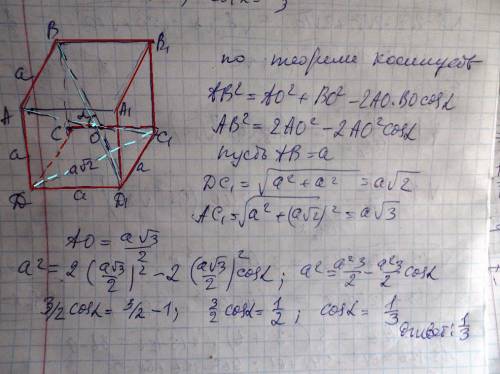 B
B₁
a
A
A₁
α
O
C
C₁
a
a√2
a
D
a
D₁
по теореме косинусов
AB² = AO² + BO² - 2AO·BO cosα
AB² = 2AO² - 2AO² cosα
пусть AB = a
DC₁ = √(a² + a²) = a√2
AC₁ = √(a² + (a√2)²) = a√3
AO = a√3/2
a² = 2(a√3/2)² - 2(a√3/2)² cosα; a² = a²3/2 - a²3/2 cosα
3/2 cosα = 3/2 - 1; 3/2 cosα = 1/2; cosα = 1/3
Ответ: 1/3